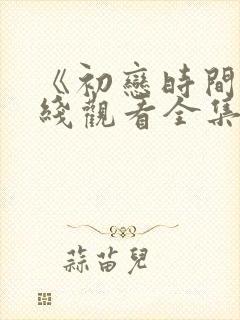 《初戀時間
綫觀看全集
蒜苗兒